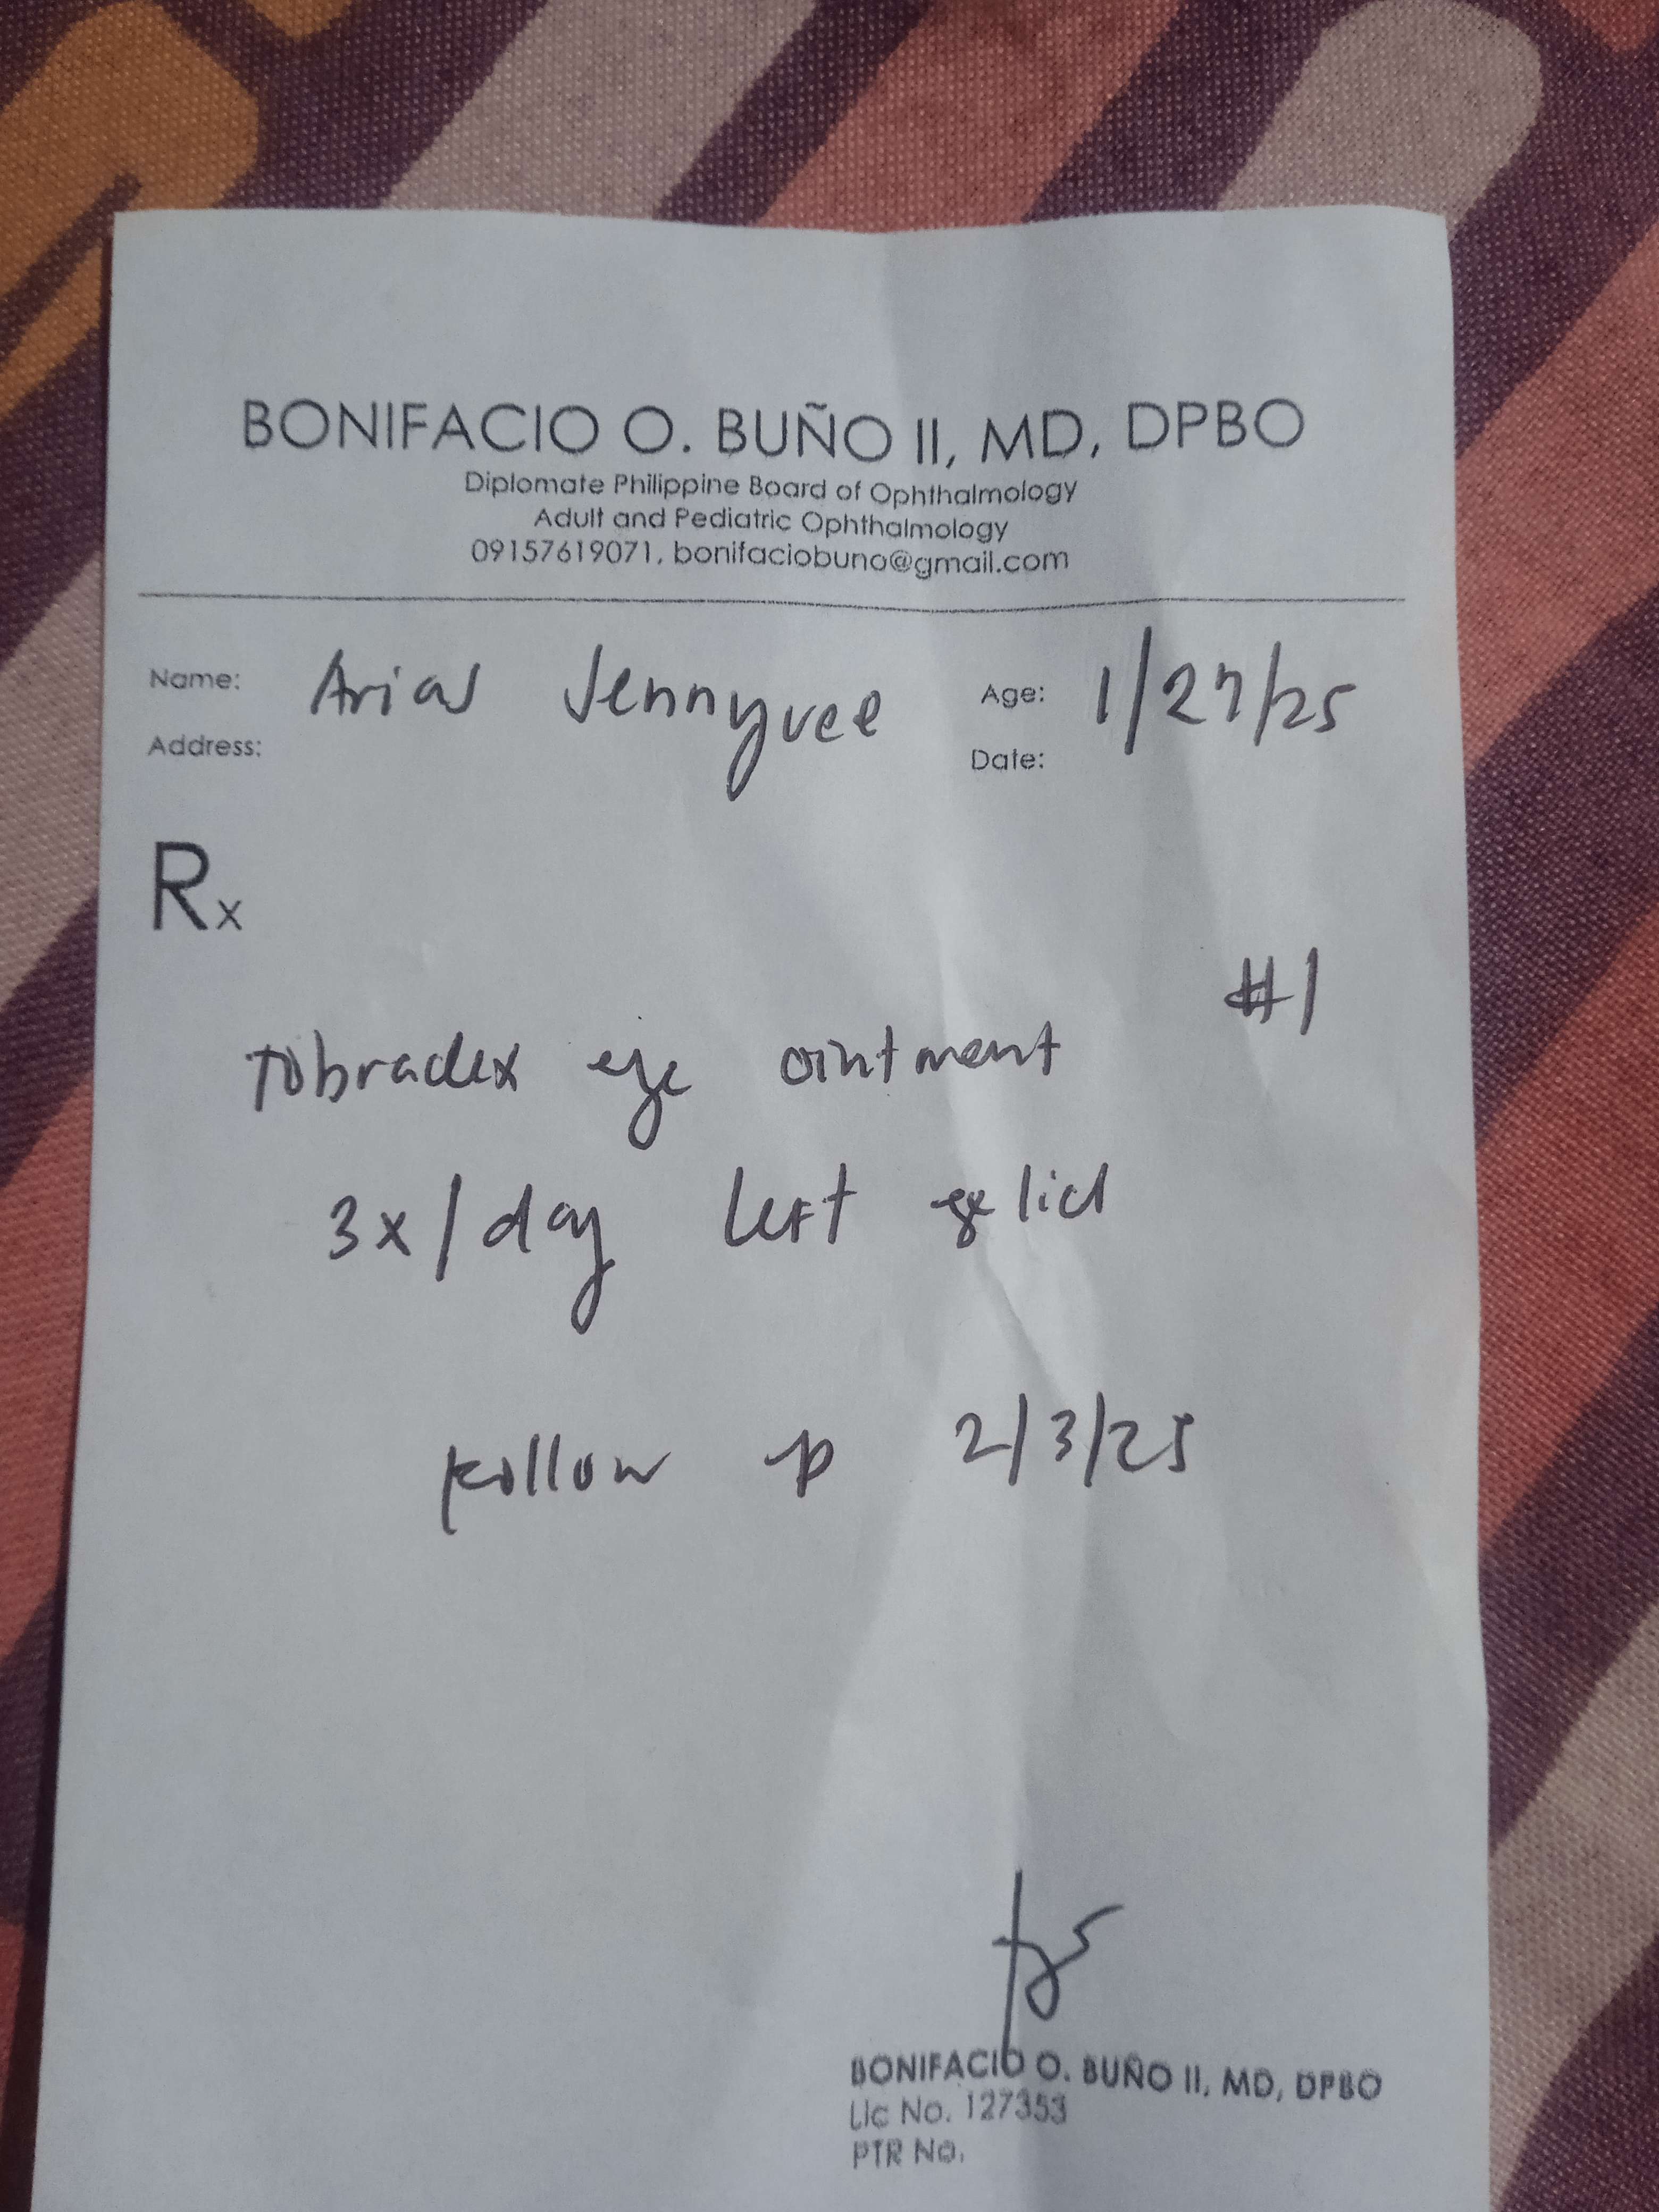 BONIFACIO O. BUÑO II, MD, DPBO
Diplomate Philippine Board of Ophthalmology
Adult and Pediatric Ophthalmology
09157619071, bonifaciobuno@gmail.com
Name: Arias Jennyvee Age: 1/27/25
Address: Date:
Rx
#1
Tobradex eye ointment
3x/day left eyelid
follow up 2/3/25
BONIFACIO O. BUÑO II, MD, DPBO
Lic No. 127353
PTR No.